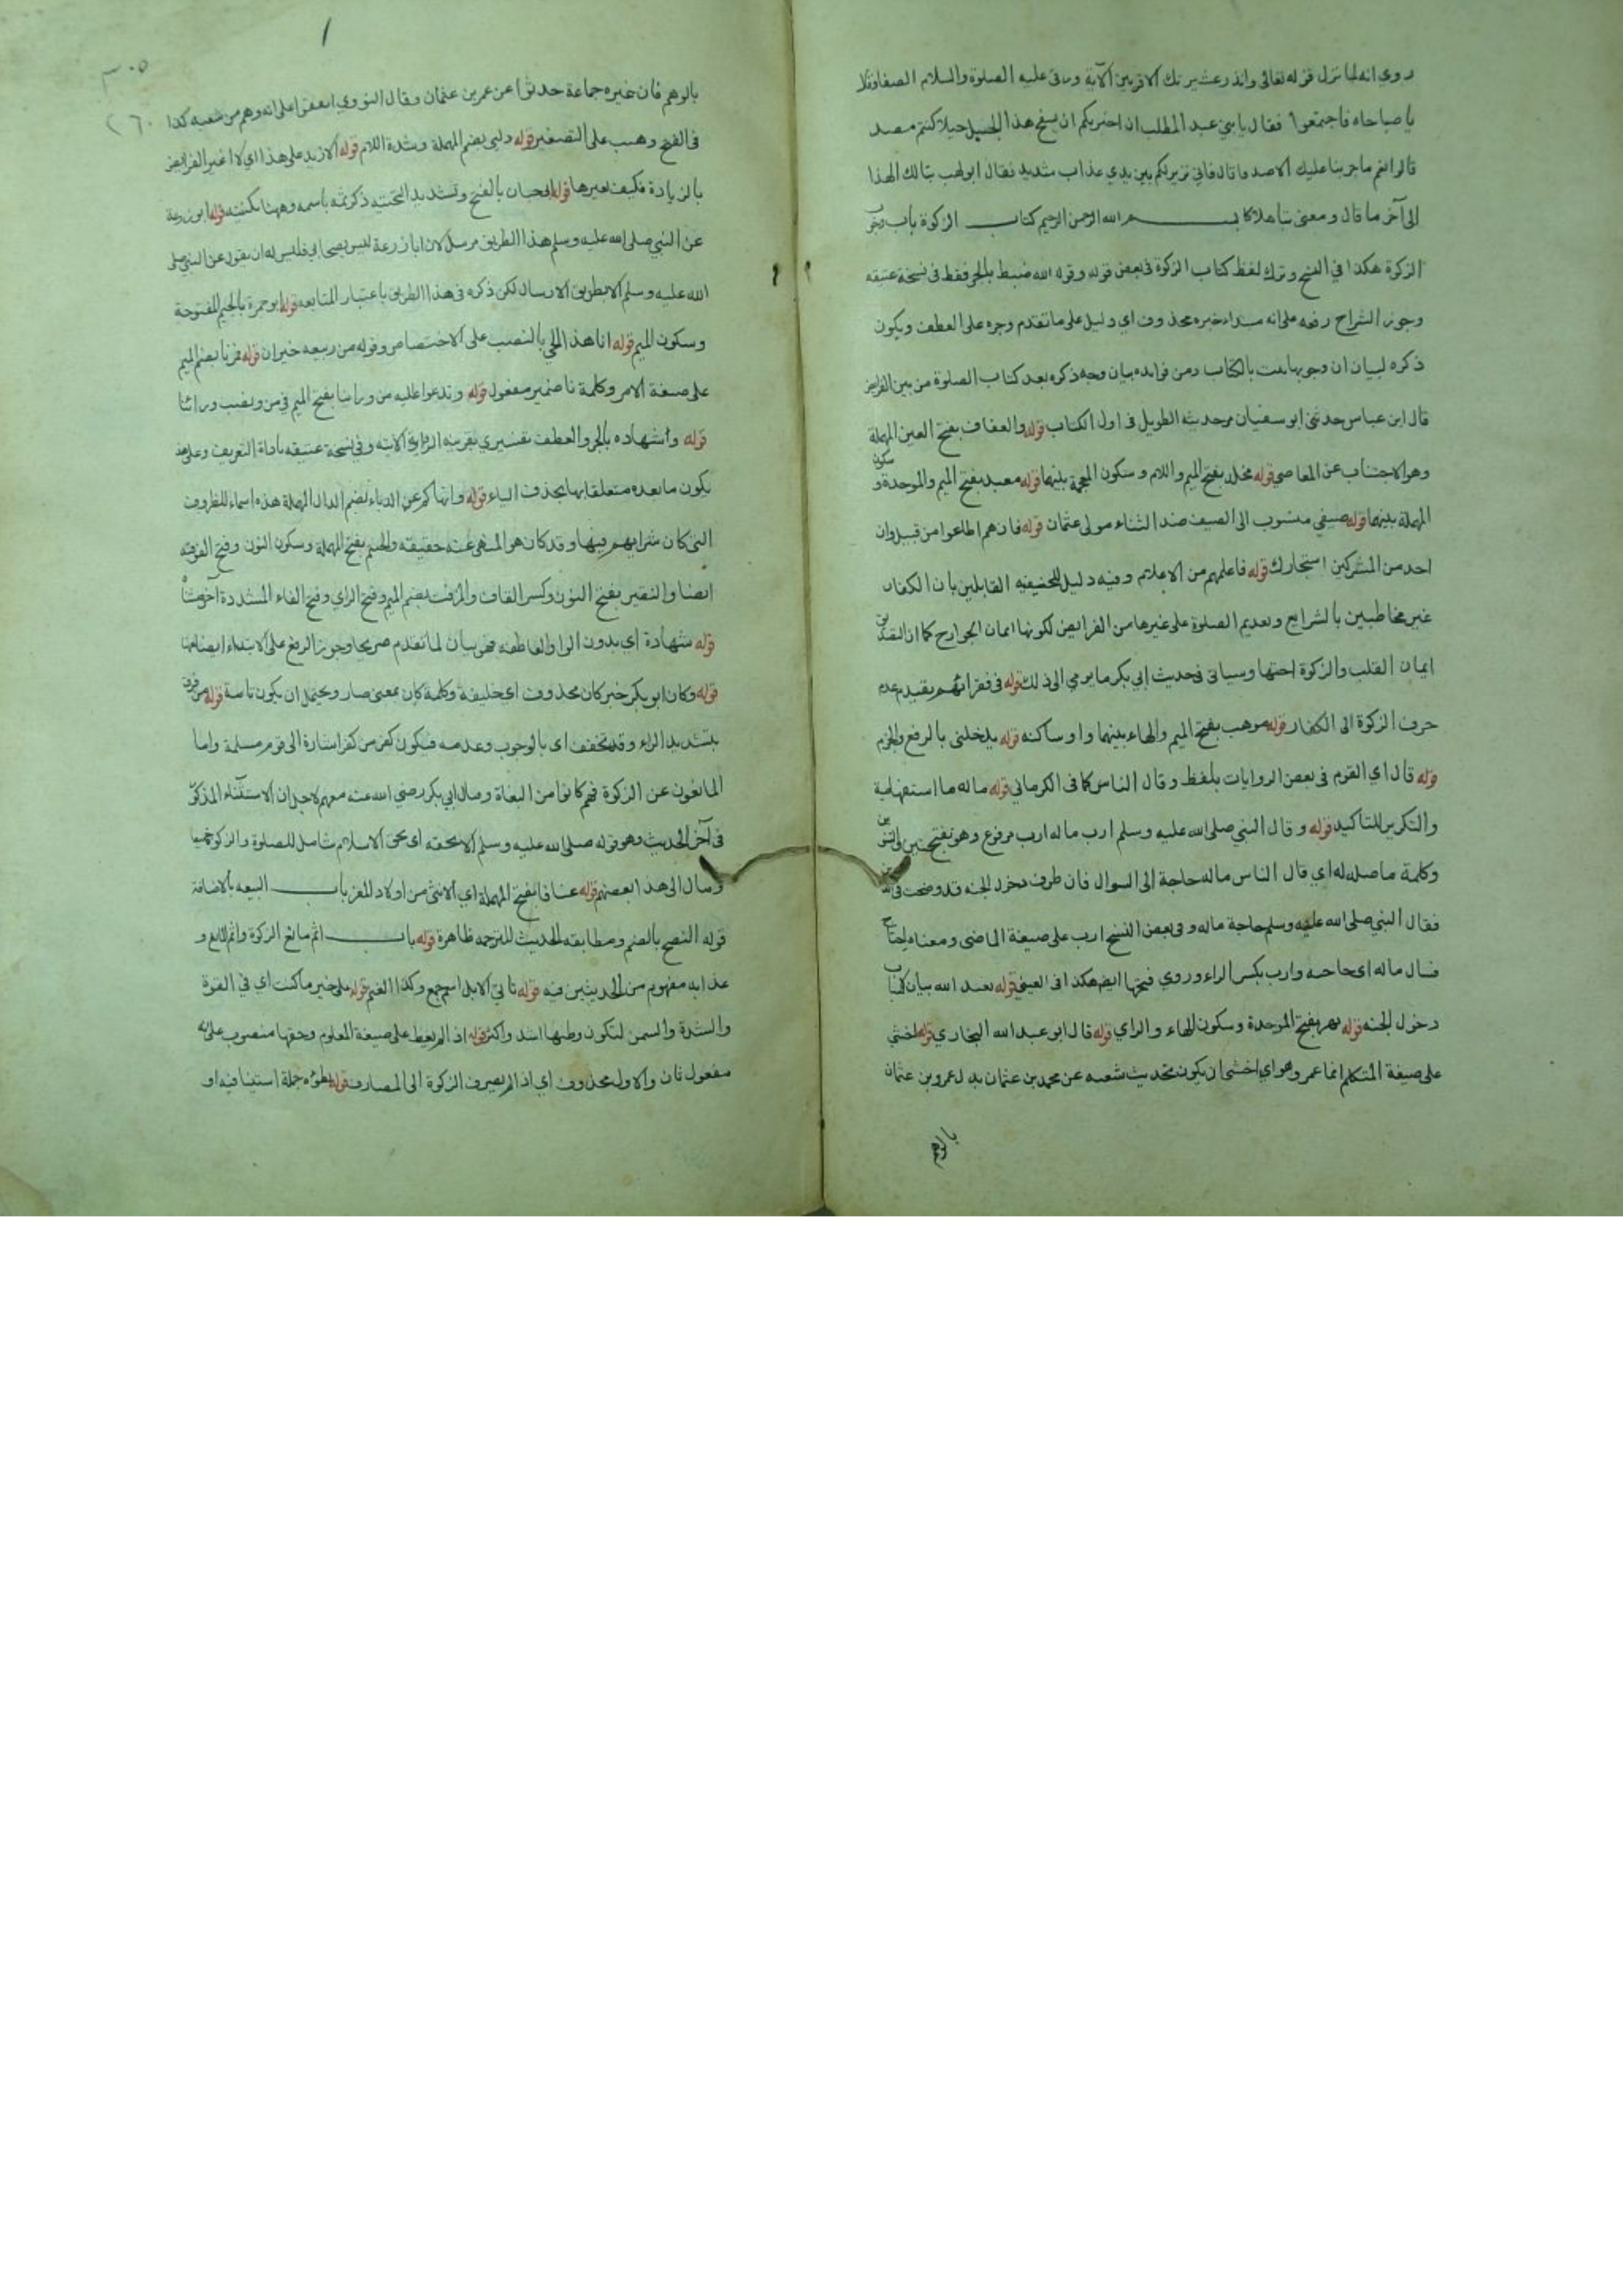 روي انه لما نزل قوله تعالى وانذر عشيرتك الاقربين الآية رقى عليه الصلوة والسلام الصفا وقال
يا صباحاه فاجتمعوا فقال يا بني عبد المطلب ان اخبركم ان بسفح هذا الجبل خيلا كنتم مصد
قالوا نعم ما جربنا عليك الا صدقا قال فاني نذير لكم بين يدي عذاب شديد فقال ابو لهب تبا لك الهذا
الى آخر ما قال ومعنى تبا هلاكا بسم الله الرحمن الرحيم كتاب الزكوة باب وجوب
الزكوة هكذا في الفتح وترك لفظ كتاب الزكوة في بعض قوله وقول الله ضبط بالجر فقط في نسخة عتيقه
وجوز الشراح رفعه على انه مبتداء خبره محذوف اي دليل على ما تقدم وجره على العطف ويكون
ذكره لبيان ان وجوبها ثبت بالكتاب ومن فوايده بيان وجه ذكره بعد كتاب الصلوة من بين الفرايض
قال ابن عباس حدثني ابو سفيان مر حديثه الطويل في اول الكتاب قوله والعفاف بفتح العين المهملة
وهو الاجتناب عن المعاصي قوله مخلد بفتح الميم واللام وسكون المعجمة بينهما قوله معبد بفتح الميم والموحدة وسكون
المهملة بينهما قوله صيفي منسوب الى الصيف ضد الشتاء مولى عثمان قوله فان هم اطاعوا من قبيل وان
احد من المشركين استجارك قوله فاعلمهم من الاعلام وفيه دليل للحنفيه القايلين بان الكفار
غير مخاطبين بالشرايع وتقديم الصلوة على غيرها من الفرايض لكونها ايمان الجوارح كما ان التصديق
ايمان القلب والزكوة اختها وسياتي في حديث ابي بكر ما يرمي الى ذلك قوله في فقرائهم يفيد عدم
صرف الزكوة الى الكفار قوله موهب بفتح الميم والهاء بينهما واو ساكنه قوله يدخلني بالرفع والجزم
قوله قال اي القوم في بعض الروايات بلفظ وقال الناس كما في الكرماني قوله ما له ما استفهامية
والتكرير للتاكيد قوله وقال النبي صلى الله عليه وسلم ارب ما له ارب مرفوع وهو بفتحتين والتنوين
وكلمة ما صلة له اي قال الناس ما له حاجة الى السوال فان طرف دخول الجنه قد وضحت
فقال النبي صلى الله عليه وسلم حاجة ما له وفي بعض النسخ ارب على صيغة الماضي ومعناه احتاج
فسال ما له اي حاجته وارب بكسر الراء وروي فتحها ايضا هكذا في العيني قوله تعبد الله بيان لاسباب
دخول الجنه قوله بهز بفتح الموحدة وسكون الهاء والزاي قوله قال ابو عبد الله البخاري قوله اخشى
على صيغة المتكلم انما عمرو هو اي اخشى ان يكون تحديث شعبه عن محمد بن عثمان بدل عمرو بن عثمان
بالوهم
٣٠٥
٢٦٠
بالوهم فان غيره جماعة حدثوا عن عمرو بن عثمان وقال النووي اتفقوا على انه وهم من شعبه كذا
في الفتح وهيب على التصغير قوله دلني بضم المهملة وشدة اللام قوله لا ازيد على هذا اي لا اغير الفرايض
بالزيادة فكيف بغيرها قوله ابي حيان بالفتح وتشديد التحتيه ذكر ثمه باسمه وههنا بكنيته قوله ابو زرعة
عن النبي صلى الله عليه وسلم هذا الطريق مرسل لان ابا زرعة ليس بصحابي فليس له ان يقول عن النبي صلى
الله عليه وسلم الا بطريق الارسال لكن ذكره في هذا الطريق باعتبار المتابعه قوله ابو جمرة بالجيم المفتوحة
وسكون الميم قوله انا هذا الحي بالنصب على الاختصاص وقوله من ربيعه خبر ان قوله فمرنا بضم الميم
على صيغة الامر وكلمة نا ضمير مفعول قوله وندعوا عليه من ورائنا بفتح الميم في من ونصب ورائنا
قوله واشهاده بالجر والعطف تفسيري بقرينه الرواية الآتيه وفي نسخة عتيقه باداة التعريف وعلى هذا
يكون ما بعده متعلقا بها بحذف الباء قوله وانهاكم عن الدباء بضم الدال المهملة هذه اسماء للظروف
التي كان شرابهم فيها وقد كان هو المنهى عنه حقيقته والحنتم بفتح المهملة وسكون النون وفتح الفوقيه
ايضا والنقير بفتح النون وكسر القاف والمزفت بضم الميم وفتح الزاي وفتح الفاء المشددة آخره تاء
قوله شهادة اي بدون الواو العاطفه فهي بيان لما تقدم صريحا وجوز الرفع على الابتداء ايضا
قوله وكان ابو بكر خبر كان محذوف اي خليفة وكلمة كان بمعنى صار ويحتمل ان يكون تامة قوله من فرق
بتشديد الراء وقد تخفف اي بالوجوب وعدمه فيكون كفر من كفر اشارة الى قوم مسلمة واما
المانعون عن الزكوة فهم كانوا من البغاة وسال ابي بكر رضي الله عنه معهم لاجل ان الاستثناء المذكور
في آخر الحديث وهو قوله صلى الله عليه وسلم الا بحقه اي بحق الاسلام شامل للصلوة والزكوة جميعا
ومال الى هذا بعضهم قوله عناقا بفتح المهملة اي الانثى من اولاد المعز باب البيعه بالاضافة
قوله النصح بالضم ومطابقه الحديث للترجمه ظاهرة قوله باب اثم مانع الزكوة واثم المانع و
عذابه مفهوم من الحديثين فيه قوله تاتي الابل اسم جمع وكذا الغنم قوله على خير ما كانت اي في القوة
والشدة والسمن لتكون وطئها اشد واكثر قوله اذا لم يعط على صيغة المعلوم وحقها منصوب على انه
مفعول ثان والاول محذوف اي اذا لم يصرف الزكوة الى المصارف قوله تطؤه جملة استينافيه او